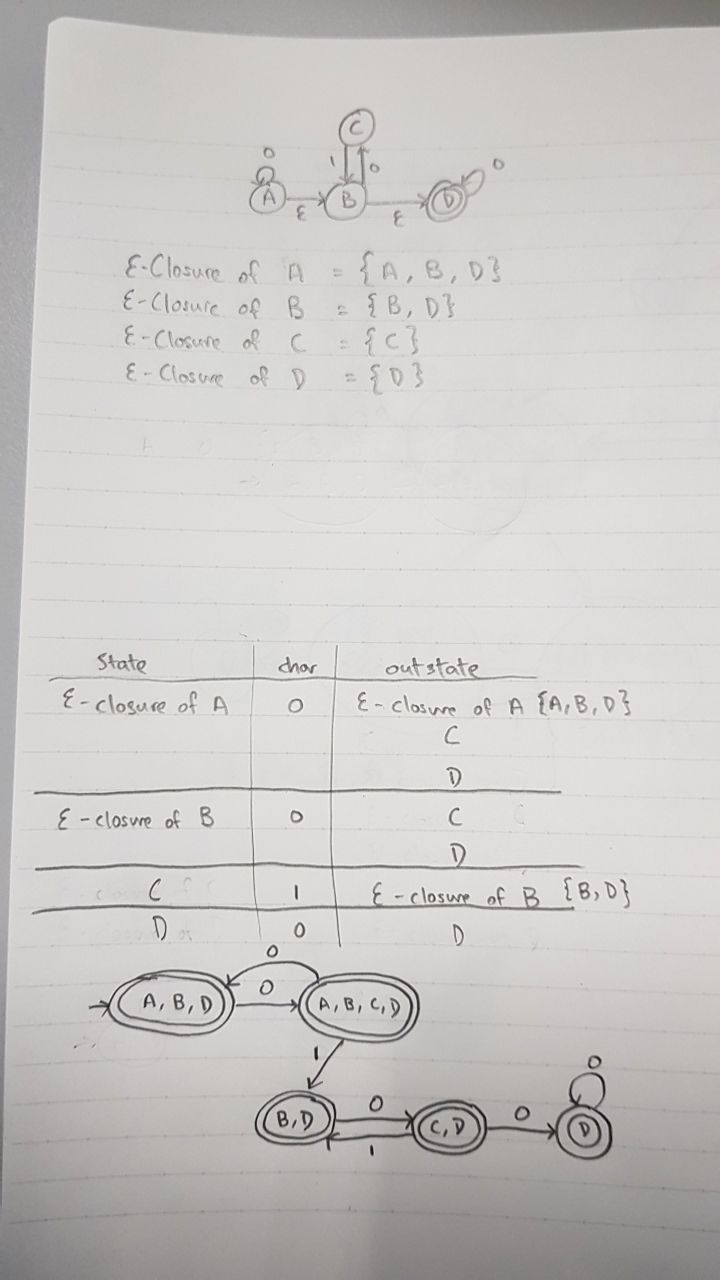 C
0 1 0 0
A B D
ε ε
ε-Closure of A = {A, B, D}
ε-Closure of B = {B, D}
ε-Closure of C = {C}
ε-Closure of D = {D}
State char outstate
ε-closure of A 0 ε-closure of A {A, B, D}
C
D
ε-closure of B 0 C
D
C 1 ε-closure of B {B, D}
D 0 D
0
A, B, D 0 A, B, C, D
1
0
B, D 0 C, D 0 D
1